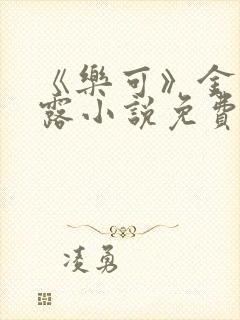 《樂可》金
露小說免費
凌勇